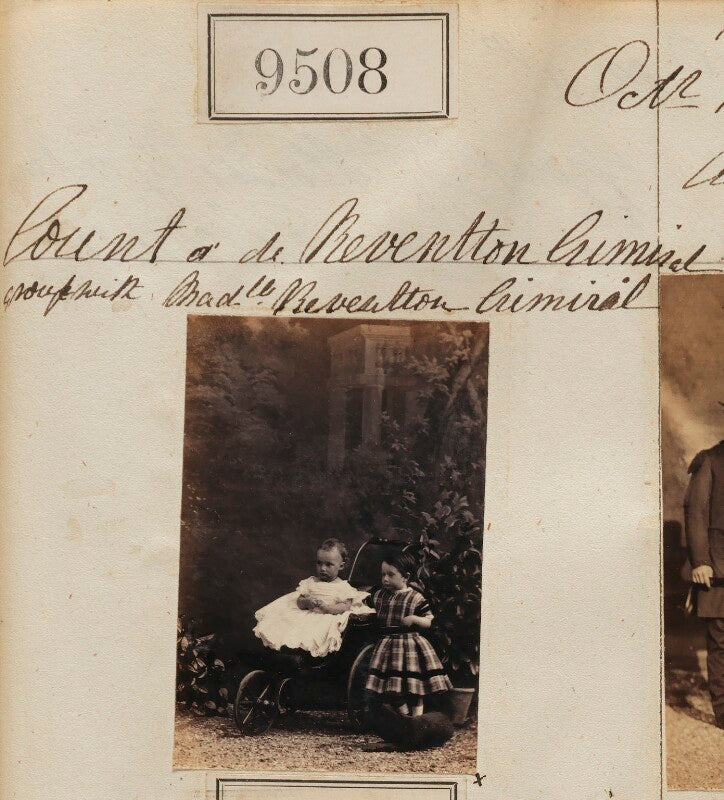 9508
Count & de Reventlton Crimiral
group with Mad^lle Reventlton Crimiral
x